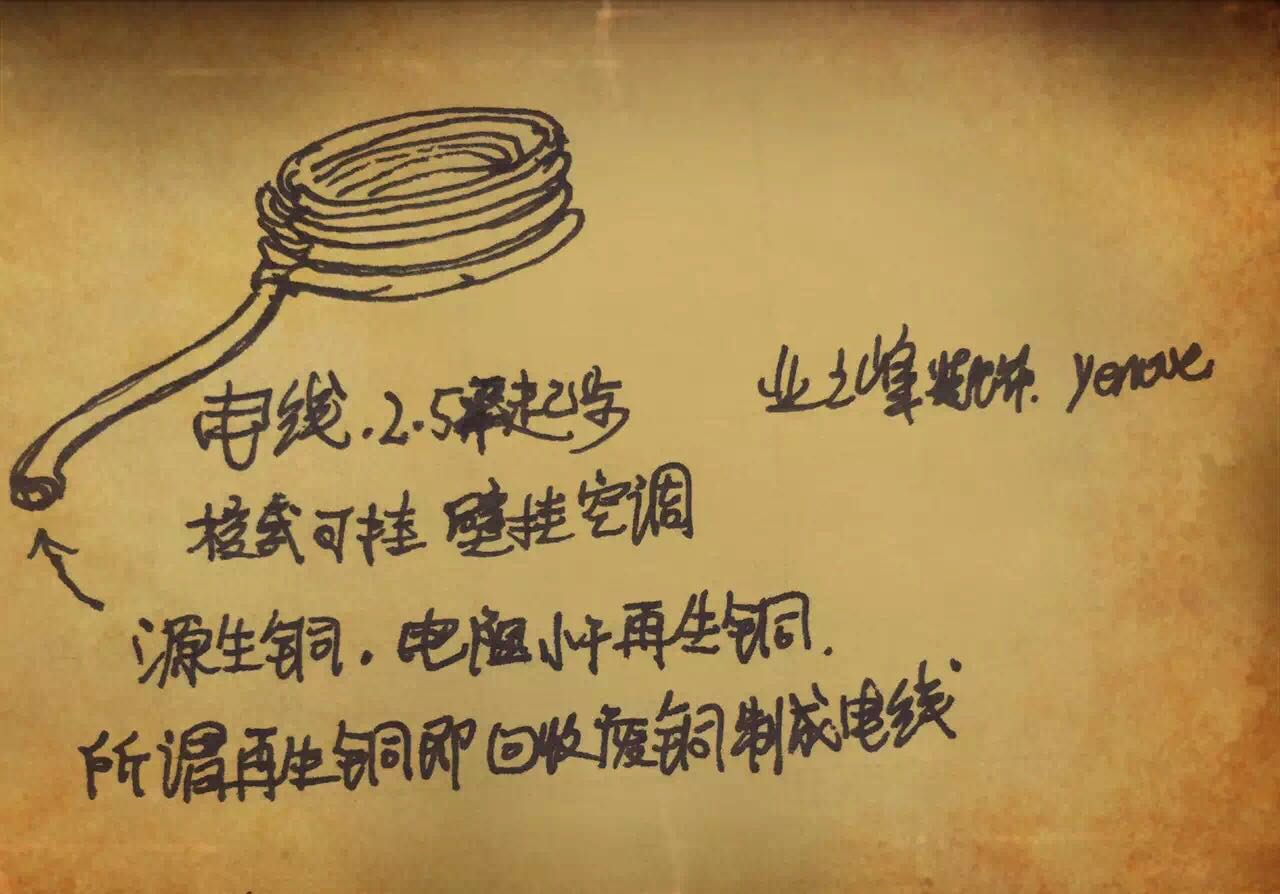 电线.2.5平起步
业之峰装饰.yenove
模式可挂 壁挂空调
源生铜.电阻小于再生铜.
所谓再生铜即回收废铜制成电线